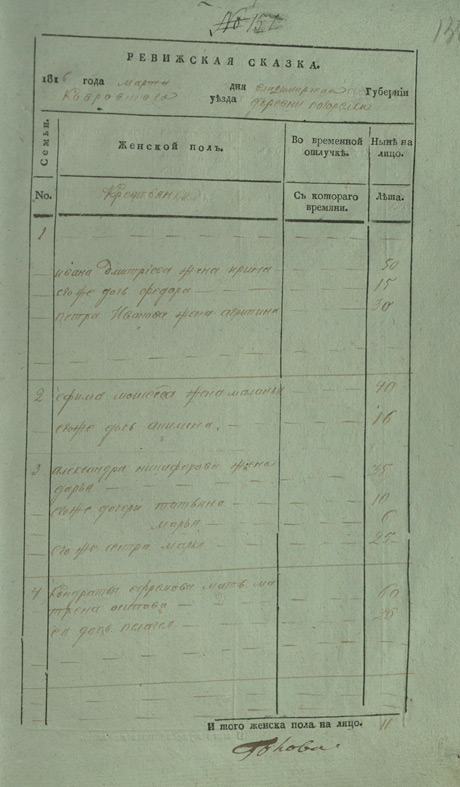 № 152
РЕВИЖСКАЯ СКАЗКА.
1816 года марта дня Губернiи
уѣзда деревни
Семьи.
Женской полъ.
Во временной отлучкѣ.
Нынѣ на лицо.
No.
Крестьянки
Съ котораго времяни.
Лѣта.
1
ивана Дмитрiева жена ирина 50
его же дочь федора 15
петра Иванова жена 30
2 ефима моисеева жена маланья 40
его же дочь 16
3 александра никифорова жена 35
дарья
его же дочери татьяна 10
марья 6
его же сестра марья 25
4 кондратья ефремова мать ма 60
трена осипова
ея дочь пелагея
И того женска пола на лицо. 11